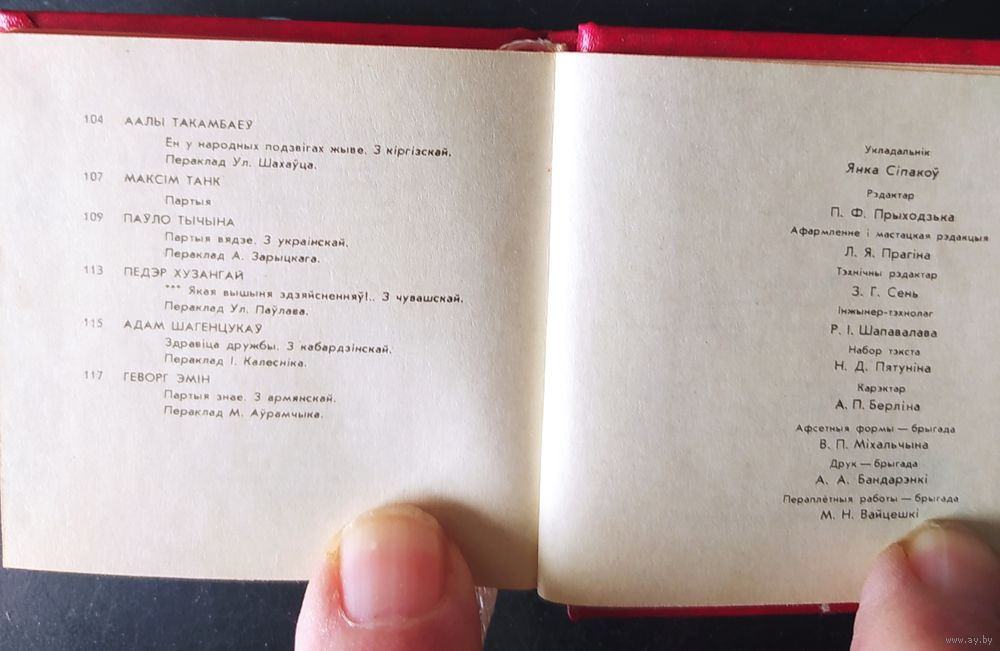 104 ААЛЫ ТАКАМБАЕЎ
Ён у народных подзвігах жыве. З кіргізскай.
Пераклад Ул. Шахаўца.
107 МАКСІМ ТАНК
Партыя
109 ПАЎЛО ТЫЧЫНА
Партыя вядзе. З украінскай.
Пераклад А. Зарыцкага.
113 ПЕДЭР ХУЗАНГАЙ
*** Якая вышыня здзяйсненняў!.. З чувашскай.
Пераклад Ул. Паўлава.
115 АДАМ ШАГЕНЦУКАЎ
Здравіца дружбы. З кабардзінскай.
Пераклад І. Калесніка.
117 ГЕВОРГ ЭМІН
Партыя знае. З армянскай.
Пераклад М. Аўрамчыка.
Укладальнік
Янка Сіпакоў
Рэдактар
П. Ф. Прыходзька
Афармленне і мастацкая рэдакцыя
Л. Я. Прагіна
Тэхнічны рэдактар
З. Г. Сень
Інжынер-тэхнолаг
Р. І. Шапавалава
Набор тэкста
Н. Д. Пятуніна
Карэктар
А. П. Берліна
Афсетныя формы — брыгада
В. П. Міхальчына
Друк — брыгада
А. А. Бандарэнкі
Пераплётныя работы — брыгада
М. Н. Вайцешкі
www.ay.by